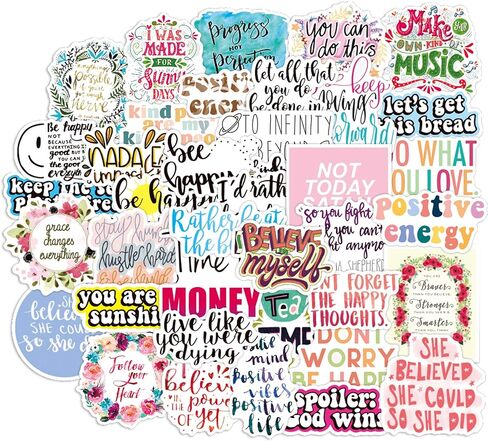 I WAS
MADE
FOR
SUNNY
DAYS
Progress
NOT
Perfection
you can
do this
Make
your
OWN KIND
OF
MUSIC
possible
nerve
positive
energy
kind people
are my
people
let all that
you do
be done in
keep
TO INFINITY
let's get
this bread
Be happy
NOT
BECAUSE
EVERYTHING IS
good BUT IF
YOU CAN
see the good
IN
everything
NADA ES
bee
happy
I'd rather
NOT
TODAY
SATAN
DO WHAT
YOU LOVE
keep the
be happy
positive
energy
grace
changes
everything
stay humble
hustle hard
Rather be at
the
Time
BELIEVE
myself
so you fight
if you can't
anymore
SHEPHERD
YOU ARE
Braver
THAN YOU BELIEVE
Stronger
THAN YOU SEEM
Smarter
THAN YOU THINK
She
believed
she could
so she did
you are
MONEY
live like
you were
dying
Ted
TIME
DON'T FORGET
THE HAPPY
THOUGHTS.
DON'T
WORRY
BE HAPPY
Follow
your
Heart
I
believe
in the
power of
yet
positive
mind
positive
vibes
positive
life
spoiler:
God wins
SHE
BELIEVED
SHE COULD
SO SHE DID